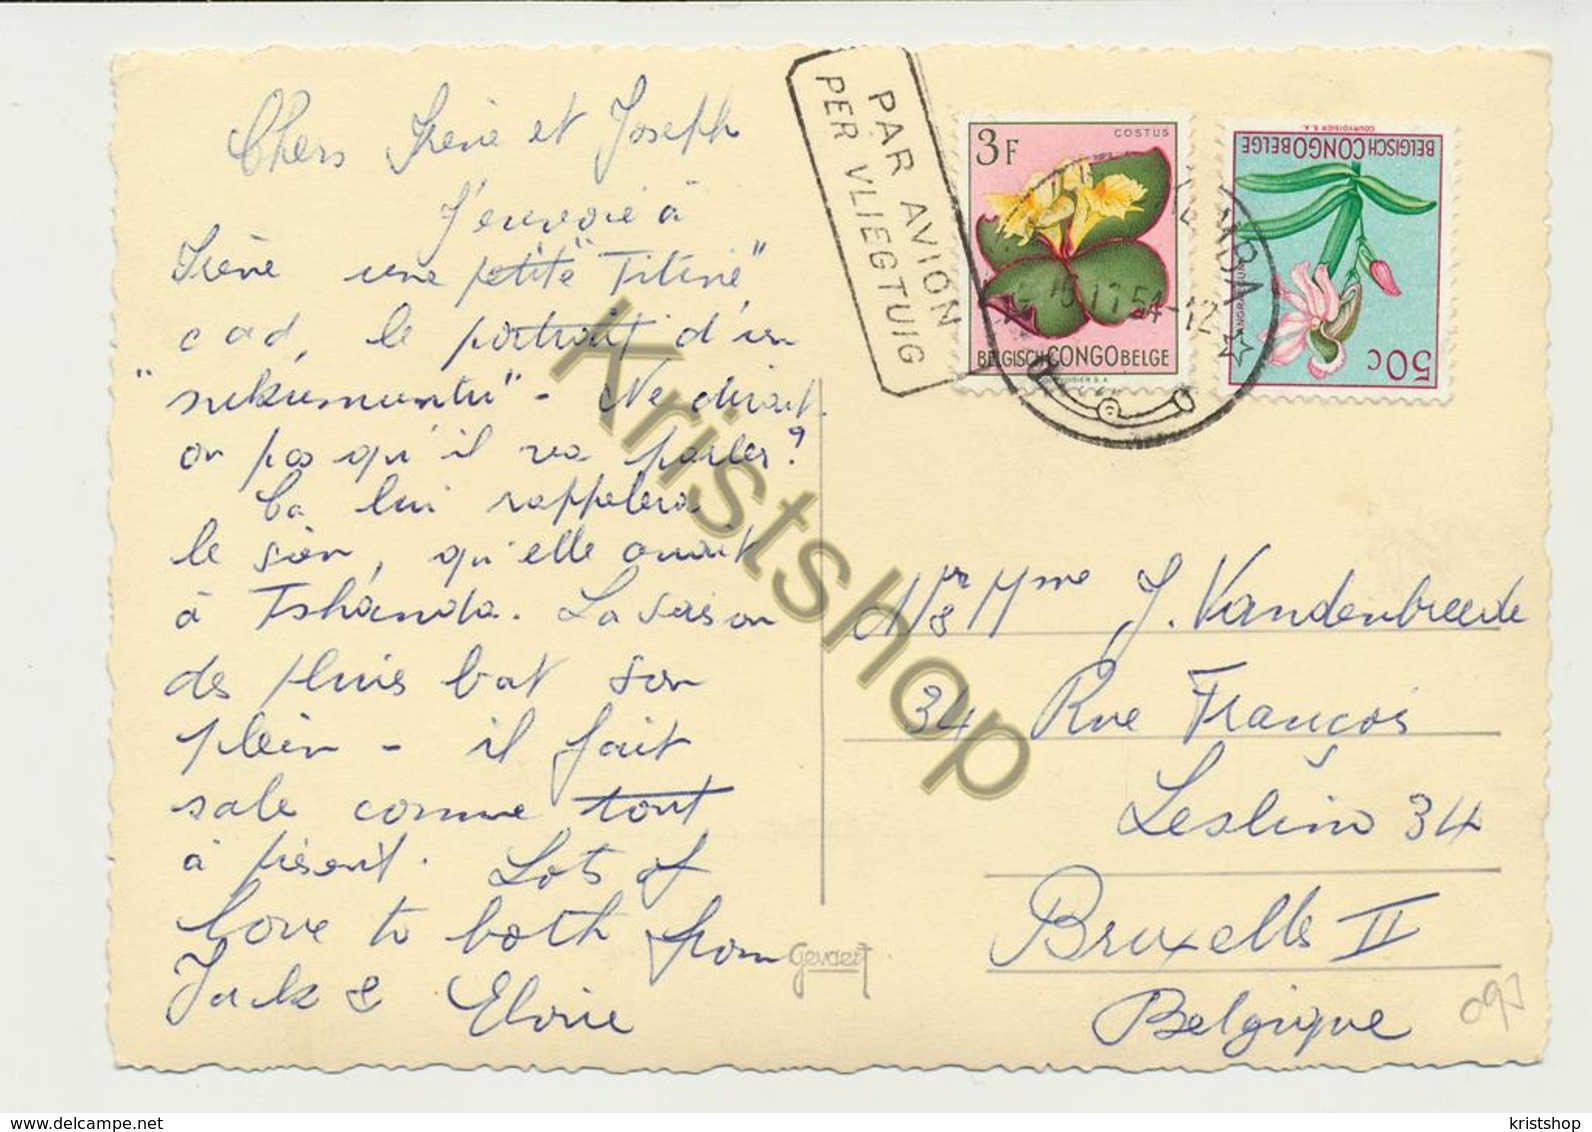 Chers Irène et Joseph
J'envoie à
Irène une petite "Titine"
càd, le portrait d'un
"sukumuntu" - Ne dirait
on pas qu'il va parler?
Ça lui rappelera
le sien, qu'elle avait
à Tshánda. La saison
des pluies bat son
plein - il fait
sale comme tout
à présent. Lots of
love to both from
Jack & Eloïse
PAR AVION
PER VLIEGTUIG
3F
COSTUS
BELGISCH CONGO BELGE
COURVOISIER S.A.
50c
ANGRAECUM
BELGISCH CONGO BELGE
COURVOISIER S.A.
54-12
Mr & Mme J. Vandenbreede
34 Rue François
Lesline 34
Bruxelles II
Belgique
Gevaert
Kristshop
kristshop